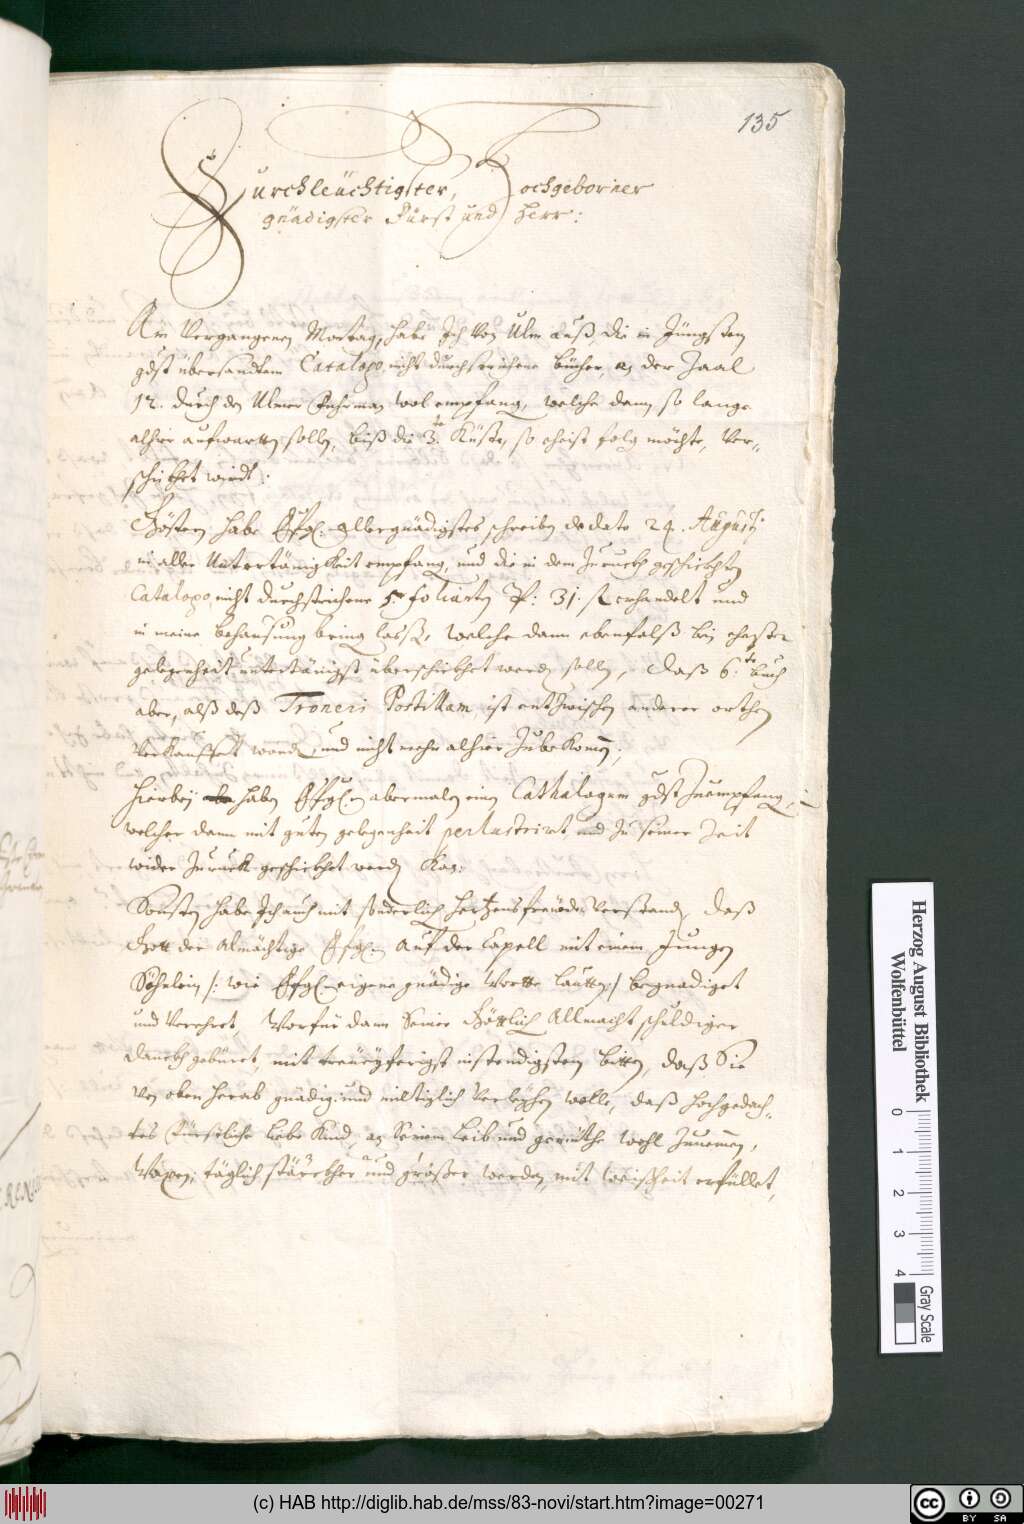 135
Durchleüchtigster, Hochgeborner
gnädigster Fürst und Herr:
Am Vergangenen Montag, habe Ich von Ulm auß, die in Jüngsten
gdst übersandtem Catalogo, nicht durchstrichene bücher, an der Zaal
12. durch den Ulmer Fuhrman wol empfang, welche dann so lange
alhier aufwartten solln, biß die 3.te Küste, so ehest folg möchte, Ver-
schickhet wirdt:
Gestern habe EFGl. allergnädigstes schreiben de dato 24. Augustj
in aller Untertänigkeit empfang, und die in dem Zuruckh geschickhten
Catalogo nicht durchstrichene 5. folianten P: 31. fl erhandelt und
in meine behausung bring lassen, welche dann ebenfalß bey ehester
gelegenheit untertänigst überschickhet werden solln, Daß 6.te buch
aber, alß deß Troneri Postillam, ist entzwischen anderer orthen
Verkaufft worden, und nicht mehr alhier Zubekommen;
Hierbey haben EFGl. abermalen einen Cathalogum gdst Zuempfang,
welcher dann mit guten gelegenheit perlustrirt, und Zu seiner Zeit
wider Zuruck geschickhet werden kan:
Sonsten habe Ich auch mit sonderlich hertzensfreüden Verstanden, Daß
Gott der Almächtige EFGl. auf der Capell mit einem Jungen
Söhnlein /: wie EFGl. eigene gnädige Wortte lautten :/ begnadiget
und Verehret, Worfür dann Seiner Göttlich Allmacht schuldiger
danckh gebüret, mit treüeyferigst instendigstem bitten, daß Sie
Von oben herab gnädig: und miltiglich Verleyhen wolle, daß hochgedach-
tes Fürstliche liebe Kind, an Seinem leib und gemüthe wohl Zunemen,
Waxen, täglich stärckher und grösser werden, mit Weißheit erfüllet,
Herzog August Bibliothek
Wolfenbüttel
0 1 2 3 4
Gray Scale
(c) HAB http://diglib.hab.de/mss/83-novi/start.htm?image=00271
CC BY SA